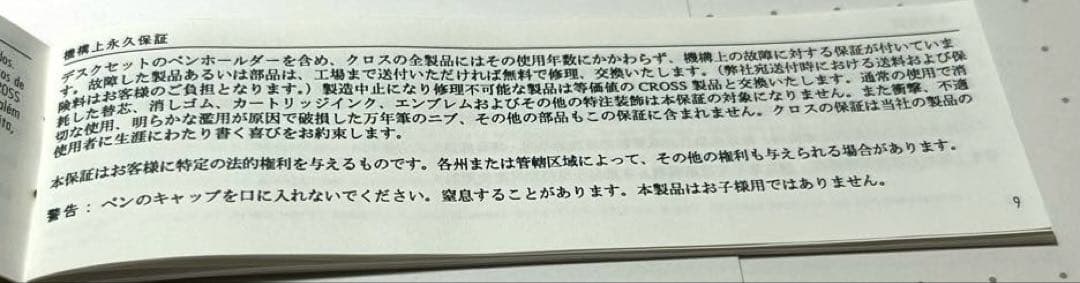 dos.
os de
OSS
além
ito,
機構上永久保証
デスクセットのペンホールダーを含め、クロスの全製品にはその使用年数にかかわらず、機構上の故障に対する保証が付いていま
す。故障した製品あるいは部品は、工場まで送付いただければ無料で修理、交換いたします。（弊社宛送付時における送料および保
険料はお客様のご負担となります。）製造中止になり修理不可能な製品は等価値の CROSS 製品と交換いたします。通常の使用で消
耗した替芯、消しゴム、カートリッジインク、エンブレムおよびその他の特注装飾は本保証の対象になりません。また衝撃、不適
切な使用、明らかな濫用が原因で破損した万年筆のニブ、その他の部品もこの保証に含まれません。クロスの保証は当社の製品の
使用者に生涯にわたり書く喜びをお約束します。
本保証はお客様に特定の法的権利を与えるものです。各州または管轄区域によって、その他の権利も与えられる場合があります。
警告：ペンのキャップを口に入れないでください。窒息することがあります。本製品はお子様用ではありません。
9